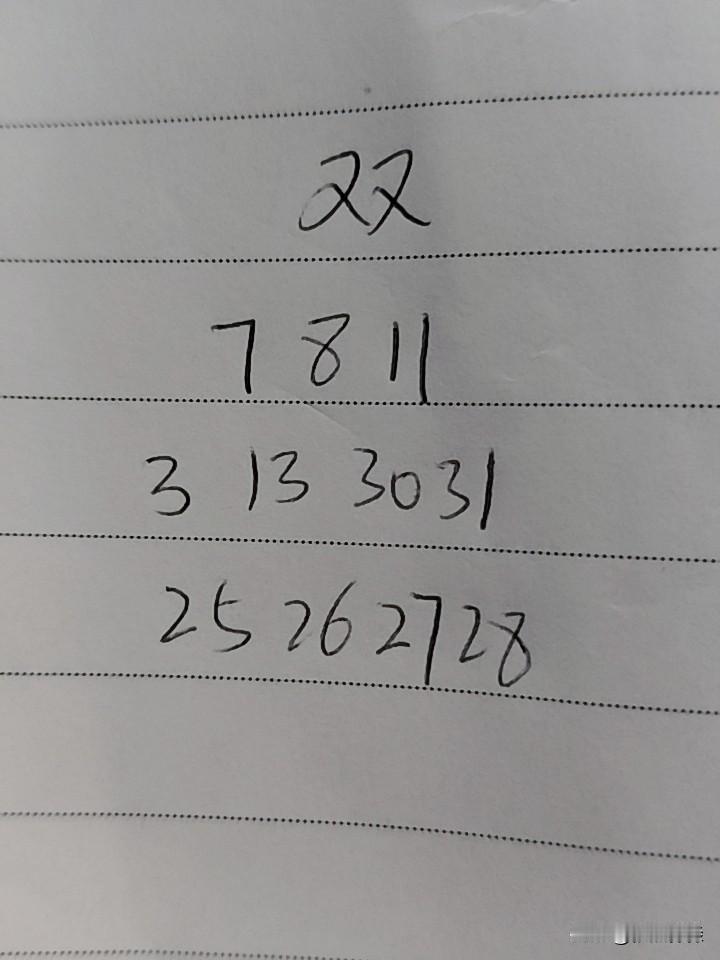 22
7 8 11
3 13 30 31
25 26 27 28